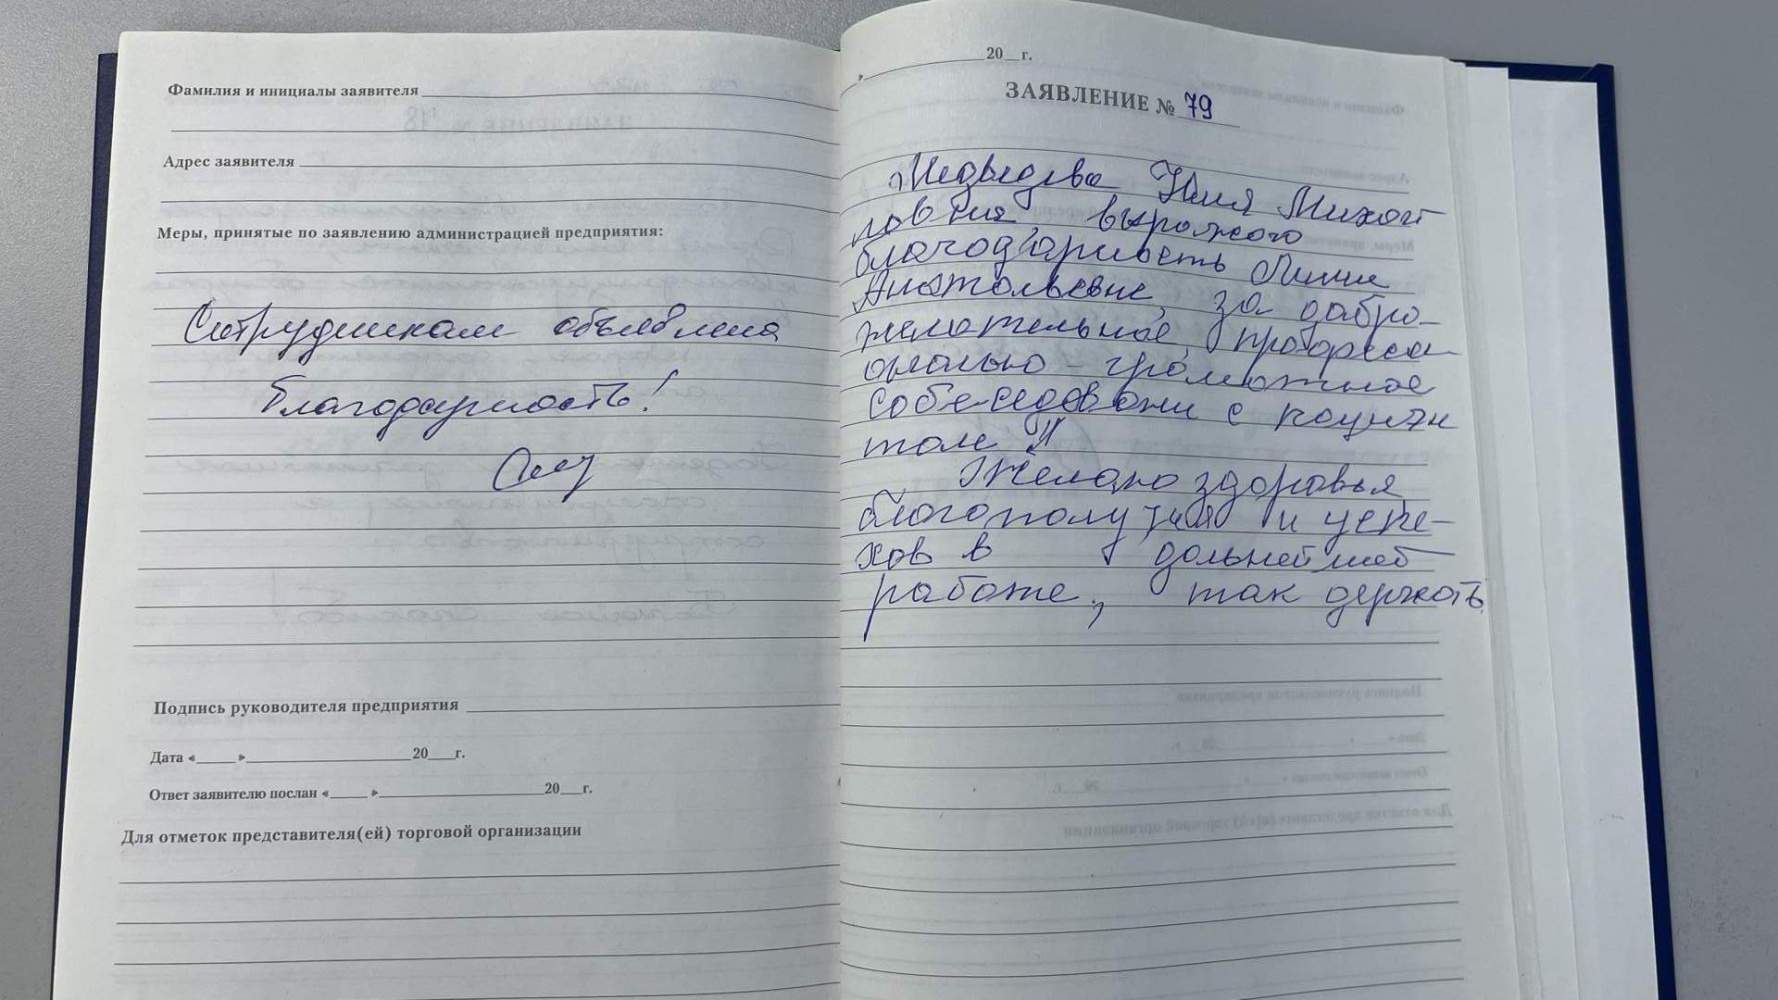 Фамилия и инициалы заявителя
Адрес заявителя
Меры, принятые по заявлению администрацией предприятия:
Сотрудникам объявлена
благодарность!
Подпись руководителя предприятия
Дата « » 20 г.
Ответ заявителю послан « » 20 г.
Для отметок представителя(ей) торговой организации
» 20 г.
ЗАЯВЛЕНИЕ № 79
Медведева Михай
ловна выражаю
благодарность
Анатольевне, за добро-
желательное, професси
онально-грамотное
собеседовани с пациен
том
Желаю здоровья
благополучия и успе-
хов в дальнейшей
работе, так держать.